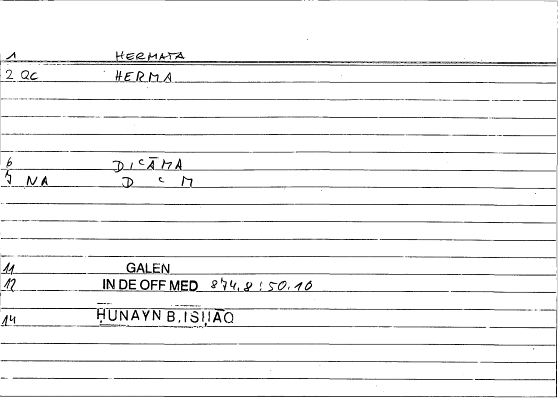 1 HERMATA
2 QC HERMA
6 DICĀMA
7 NA D C M
11 GALEN
12 IN DE OFF MED 874.8:50.10
14 ḤUNAYN B.ISḤAQ